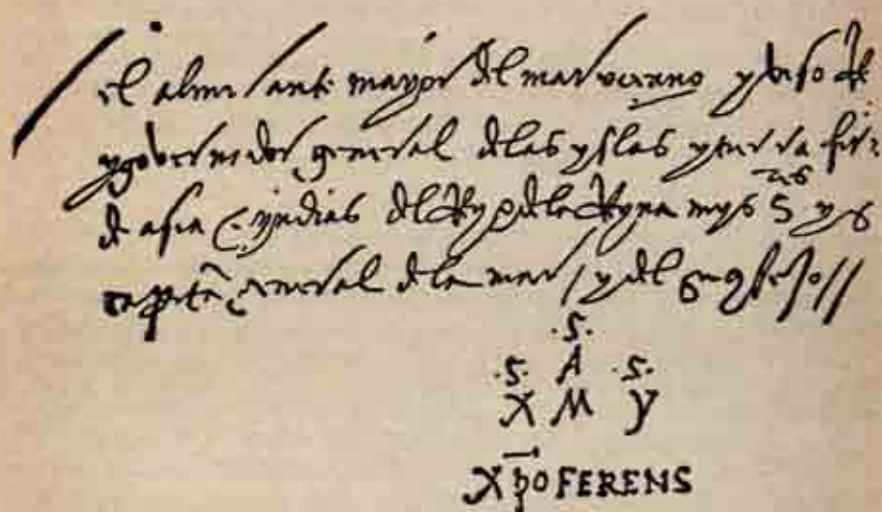 el almirante mayor del mar oceano y viso Rey
y governador general de las yslas y tierra fir
de asia e yndias del Rey e de la Reyna mys S.res y su
capitã general de la mar / y del su qsejo //
.S.
.S. A .S.
X M Y
XpoFERENS